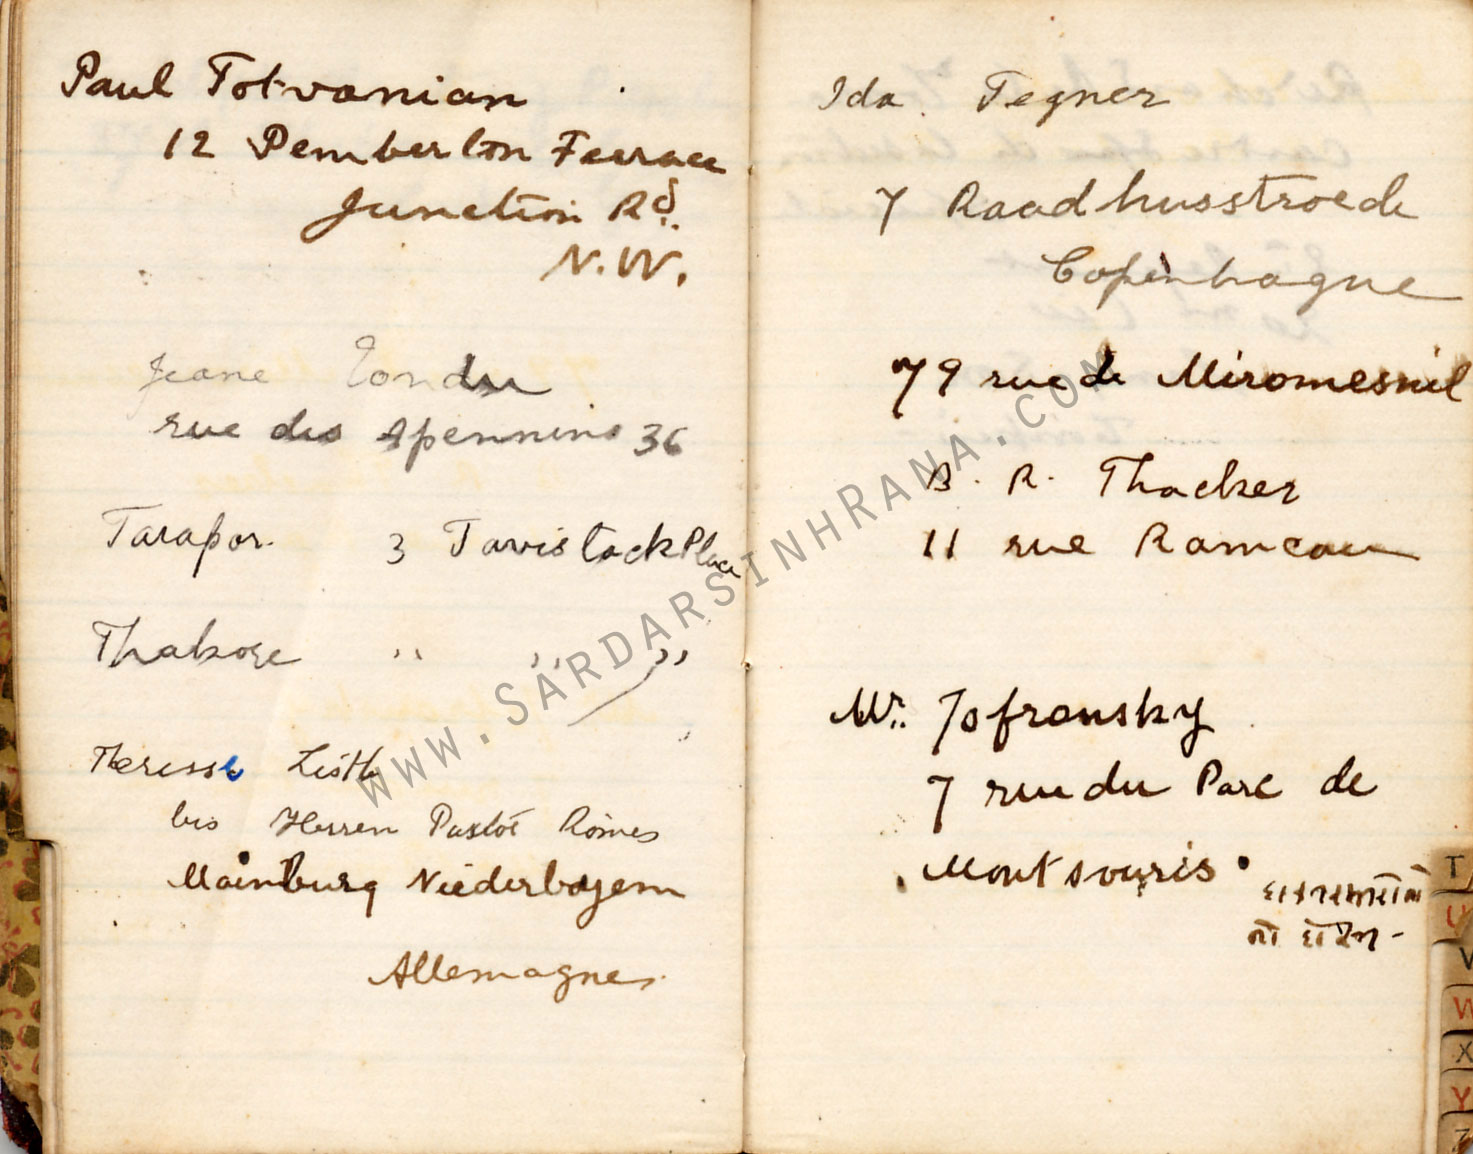 Paul Totvanian
12 Pemberton Terrace
Junction Rd.
N.W.
Jeane Tondu
rue des Apennins 36
Tarapor. 3 Tavistock Place
Thakore " " "
Therese
bis Herren Pastor
Mainburg Niederbayern
Allemagne.
Ida Tegner
7 Raadhusstroede
Copenhague
79 rue de Miromesnil
B. R. Thacker
11 rue Rameau
Mr. Tofransky
7 rue du Parc de
Montsouris.
WWW.SARDARSINHRANA.COM
T
U
V
W
X
Y
Z